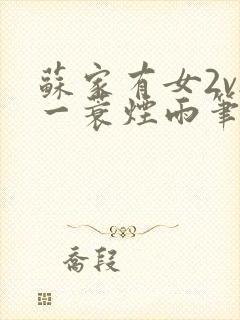 蘇家有女2v
一蓑煙雨筆
喬段